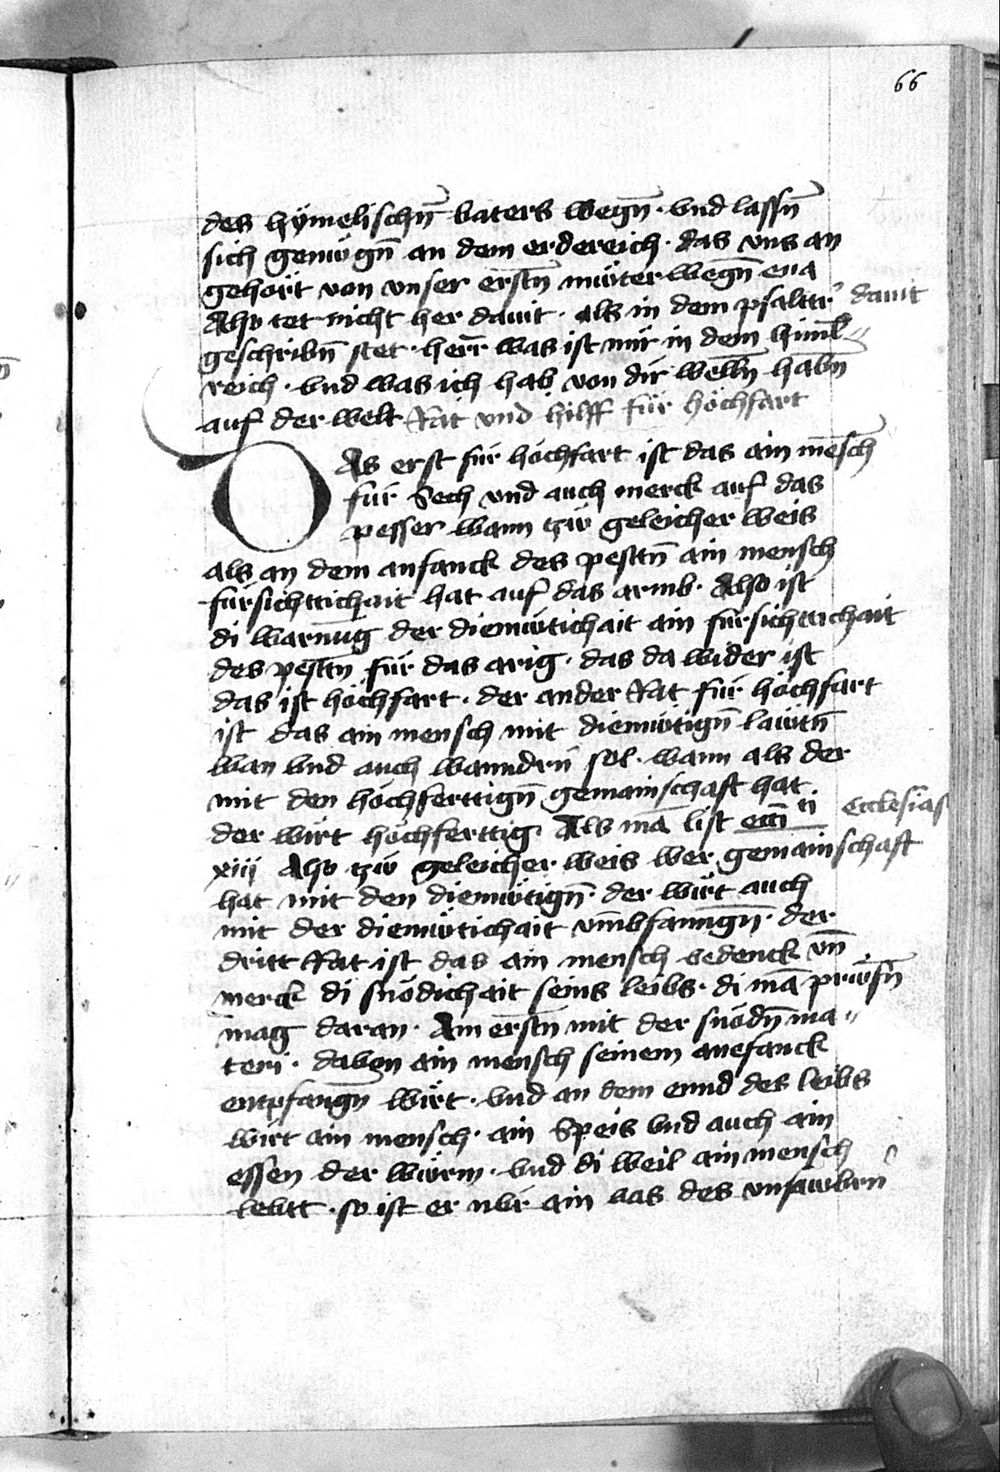 66
des hÿmelischn̄ vaters wegn̄ · vnd lassn̄
sich genügn̄ an dem erdereich · das vns an
gehört von vnser erstn̄ müter wegn̄ eua
Also tet nicht her dauit · als in dem psalttr̄ dauit
geschribn̄ stet · herr̄ was ist mir in dem himl̄
reich · vnd was ich hab von dir wellñ habñ
auf der welt Rat vnd hilff für höchfart
DAs erst für höchfart ist das ain mēsch
für Sech vnd auch merck auf das
pesser wann tzw geleicher weis
als an dem anfanck des pestn̄ ain mensch
fürsichttichait hat auf das armb · Also ist
di warnūg der diemütichait ain fürsichttichait
des pestn̄ für das arig · das da wider ist
das ist höchfart · der ander Rat für höchfart
ist das ain mensch mit diemütign̄ läwtn̄
wan vnd auch wanndrn̄ sol · wann als der
mit den höchferttign̄ gemainschaft hat ·
der wirt höchferttig · Als mā list eccīti ecclesias
xiii Also tzw geleicher weis wer gemainschaft
hat mit den diemütign̄ · der wirt auch
mit der diemütichait vmbfanngn̄ · der
dritt Rat ist das ain mensch bedenck vn̄
merck di snödichait seins leibs · di mā prüfn̄
mag daran · Am erstn̄ mit der snödn̄ ma〃
teri · davon ain mensch seinem anefanck
entpfangn̄ wirt · vnd an dem ennd des leibs
wirt ain mensch · ain Speis vnd auch ain
essen der würm · vnd di weil ain mensch
lebtt · so ist er nur ain vas des vnsawbrn̄